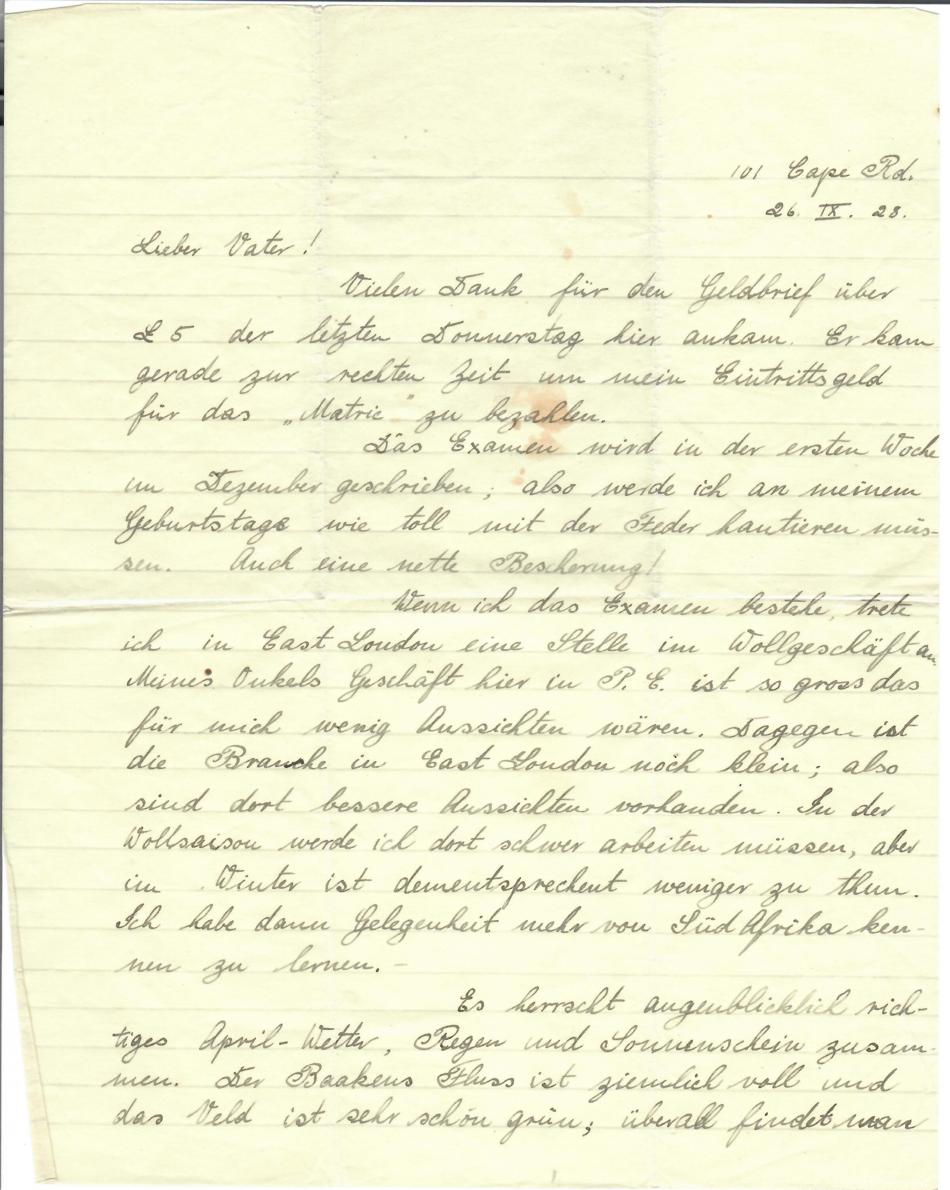 101 Cape Rd.
26. IX. 28.
Lieber Vater!
Vielen Dank für den Geldbrief über
£ 5 der letzten Donnerstag hier ankam. Er kam
gerade zur rechten Zeit um mein Eintrittsgeld
für das „Matric" zu bezahlen.
Das Examen wird in der ersten Woche
im Dezember geschrieben; also werde ich an meinem
Geburtstage wie toll mit der Feder hantieren müs-
sen. Auch eine nette Bescherung!
Wenn ich das Examen bestehe, trete
ich in East London eine Stelle im Wollgeschäft an.
Meines Onkels Geschäft hier in P. E. ist so gross das
für mich wenig Aussichten wären. Dagegen ist
die Branche in East London noch klein; also
sind dort bessere Aussichten vorhanden. In der
Wollsaison werde ich dort schwer arbeiten müssen, aber
im Winter ist dementsprechent weniger zu thun.
Ich habe dann Gelegenheit mehr von Süd Afrika ken-
nen zu lernen. –
Es herrscht augenblicklich rich-
tiges April-Wetter, Regen und Sonnenschein zusam-
men. Der Baakens Fluss ist ziemlich voll und
das Veld ist sehr schön grün; überall findet man